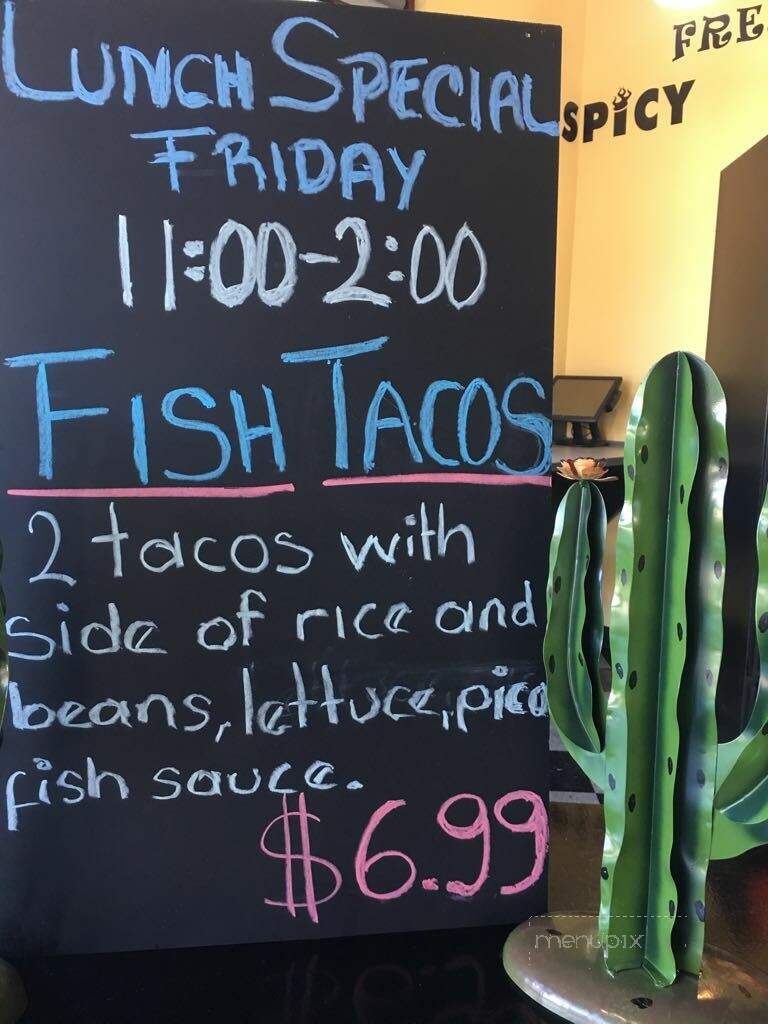 LUNCH SPECIAL
FRIDAY
11:00-2:00
FISH TACOS
2 tacos with
side of rice and
beans, lettuce, pico
fish sauce.
$6.99
FRE
SPICY
menupix